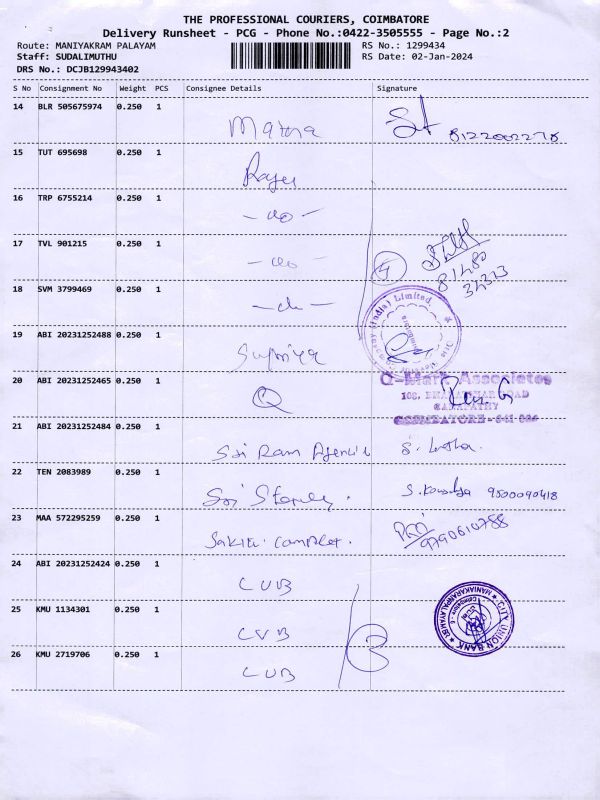 THE PROFESSIONAL COURIERS, COIMBATORE
Delivery Runsheet - PCG - Phone No.:0422-3505555 - Page No.:2
Route: MANIYAKRAM PALAYAM RS No.: 1299434
Staff: SUDALIMUTHU RS Date: 02-Jan-2024
DRS No.: DCJB129943402
S No Consignment No Weight PCS Consignee Details Signature
14 BLR 505675974 0.250 1
8122002278
15 TUT 695698 0.250 1
16 TRP 6755214 0.250 1
- do -
17 TVL 901215 0.250 1
- do -
4
81480
34323
18 SVM 3799469 0.250 1
- do -
(India) Limited
19 ABI 20231252488 0.250 1
Supriya
20 ABI 20231252465 0.250 1
Q
Q-Mark Associates
108, ROAD
GANAPATHY
COIMBATORE - 641
21 ABI 20231252484 0.250 1
Sri Ram Agencil S.
22 TEN 2083989 0.250 1
Sri S. 9500090418
23 MAA 572295259 0.250 1
Sakthi 9790610788
24 ABI 20231252424 0.250 1
CUB
25 KMU 1134301 0.250 1
CUB
3
CITY UNION BANK
MANIAKARANPALAYAM
26 KMU 2719706 0.250 1
CUB